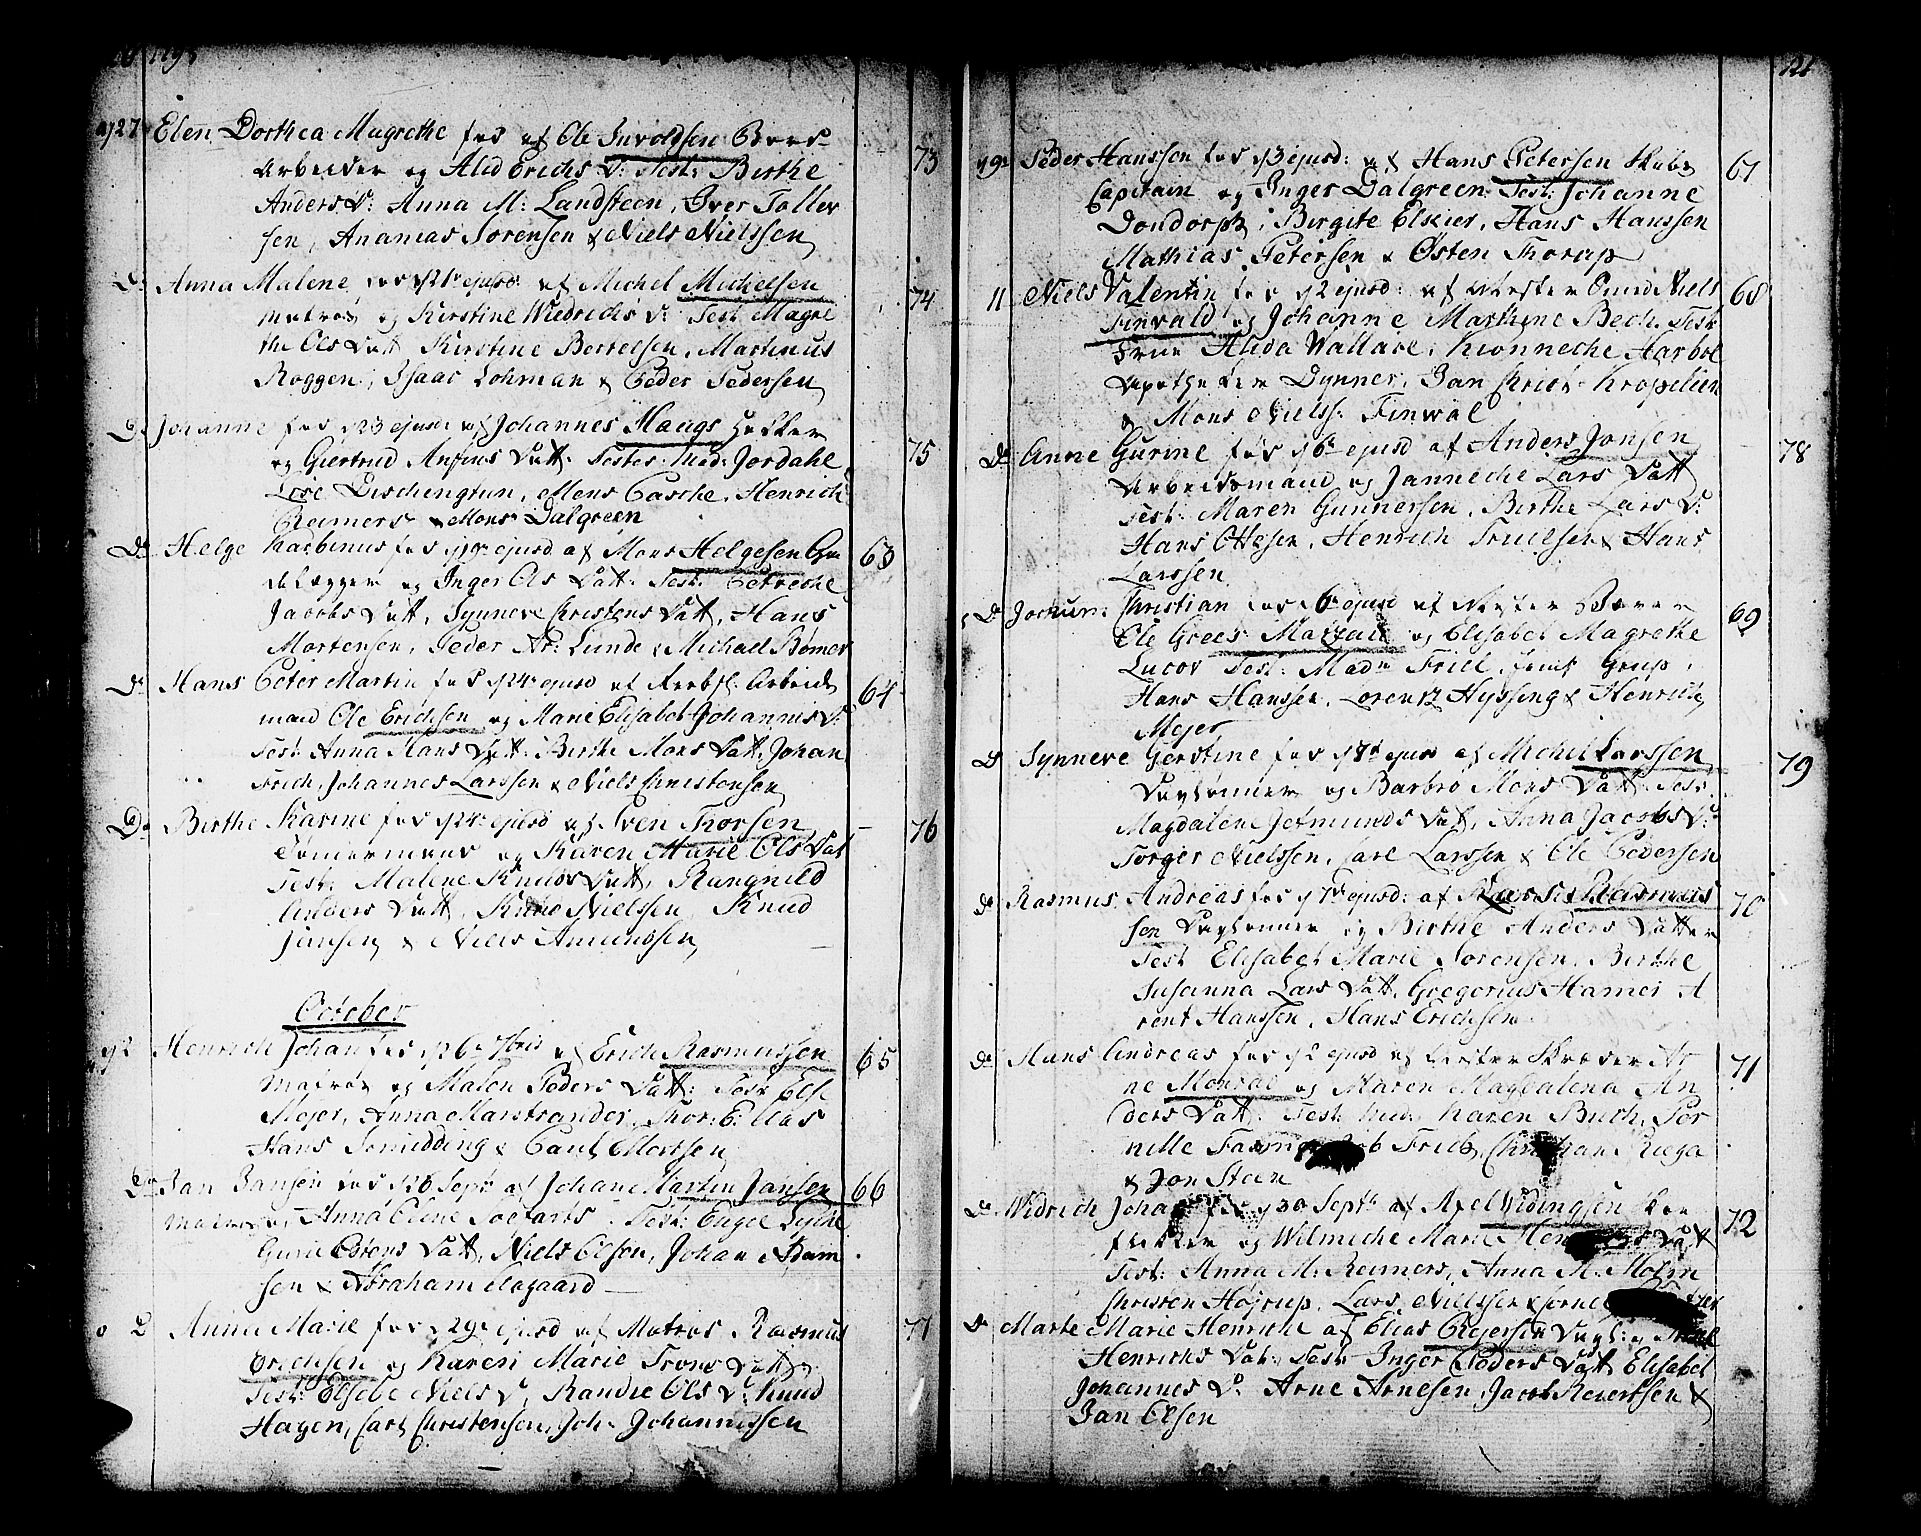 1795
27 Elen Dorthea Magrethe fød af Ole Involdsen Bords 73
Arbeider og Alid Erichs D: Test: Birthe
Anders D: Anna M: Landsteen, Iver Toller
sen, Ananias Sørensen & Niels Nielssen
D: Anna Malene fød d 21 ejusd: af Michel Michelsen 74
Matros og Kirstine Wiedrichs D: Test: Magre
the Ols Datt. Kirstine Bertelsen, Martinus
Roggen, Isaac Lohman & Peder Pedersen
D: Johanne fød d 23 ejusd: af Johannes Haugs 75
og Giertrud Ansins Datt. Testes: Mad: Jordahl
Lise Dischengtun, Mons Casche, Henrich
Reimers & Mons Dalgreen
D: Helge Karbinus fød d 19 ejusd af Mons Helgesen Ga 63
delægger og Inger Ols Datt: Test: Petreche
Jacobs Datt, Synneve Christens Datt, Hans
Mortensen, Peder Ar: Lunde & Michael Bømer
D: Hans Peter Martin fød d 24 ejusd af Arbeids 64
mand Ole Erichsen og Marie Elisabet Johannis D:
Test: Anna Hans Datt: Birthe Mons Datt, Johan
Frich, Johannes Larssen & Niels Christensen
Do Birthe Karine fød d 24 ejusd af Sven Thorsen 76
Tømermand og Karen Marie Ols Dat
Test: Malene Knuds Datt, Rangnild
Asbiørs Datt, Nielssen, Knud
Jensen & Niels Amundsen
October
Henrich Johan fød d 26 7bris af Erich Rasmussen 65
Matros og Malen Peders Datt: Test Else
Mejer, Anna Marstrander, Thor: Ellias
Hans Smidding & Paul Mortsen
Do Jan Jansen fød d 28 Sept: af Johan Martin Jansen 66
Matros og Anna Elene Soefarts. Test: Engel Lyche
Guri Østens Datt, Niels Olsen, Johan Adam
sen & Abraham Aagaard
D Anna Marie fød d 29 ejusd af Matros Rasmus 77
Erichsen og Karen Marie Trons Datt
Test: Elsebe Niels D, Randie Ols D: Knud
Hagen, Carl Christensen, Joh: Johannessen
121
Peder Hanssen fød d 3 ejusd: af Hans Petersen Skibs 67
Capitain og Inger Dalgreen Test: Johanne
Dondorph, Birgite Elskier, Hans Hanssen
Mathias Petersen & Østen Thorup
11 Niels Valentin fød d 2 ejusd: af Mester Niels 68
Finvald og Johanne Marthine Bech. Test
Frue Alida Wallace, Kionneche Aarboe
Apotheker Dynner, Jan Krøpelien
& Mons Nielss: Finwal
Do Anne Gurine fød d 6 ejusd af Anders Jonsen 78
Arbeidsmand og Janneche Lars Datt
Test: Maren Gunnersen, Birthe Lars D:
Hans Ottesen, Henrich Truelsen & Hans
Larssen
D Jochum Christian fød d 6 ejusd af Mester 69
Ole Grees og Elisabet Magrethe
Lucov Test: Madm Friel, Grup,
Hans Hanssen, Lorentz Hyssing & Henrich
Mejer
D Synneve Gerstine fød d 7 ejusd af Michel Larssen 79
Dagtønner og Barbro Mons Datt Test
Magdalene Jetmunds Datt, Anna Jacobs D:
Torger Nielssen, Carl Larssen & Ole Pedersen
do Rasmus Andreas fød d 7 ejusd: af Lars Rasmus 70
sen Dagtønner og Birthe Anders Datter
Test Elisabet Marie Sørensen, Birthe
Susanna Lars Datt, Gregorius Hamer A
rent Hanssen, Hans Erichsen
Do Hans Andreas fød d 2 ejusd af Mester Skræder Ar 71
ne Monrad og Maren Magdalena An
ders Datt. Test: Mad: Karen Buch, Per
nille Friis, Christian Riega
& Jon Steen
D: Widrich Johan fød d 30 Septb: af Axel Widingsen 72
og Wilmiche Marie Datt
Test: Anna M: Reimers, Anna M. Holm
Christen Højrup, Lars Nielssen
D Marte Marie Henriche af Elias Rejersen Dagt: og
Henrichs Dat: Test Inger Peders Datt Elisabet
Johannes D: Arne Arnesen, Jacob Revertsen &
Jan Olsen